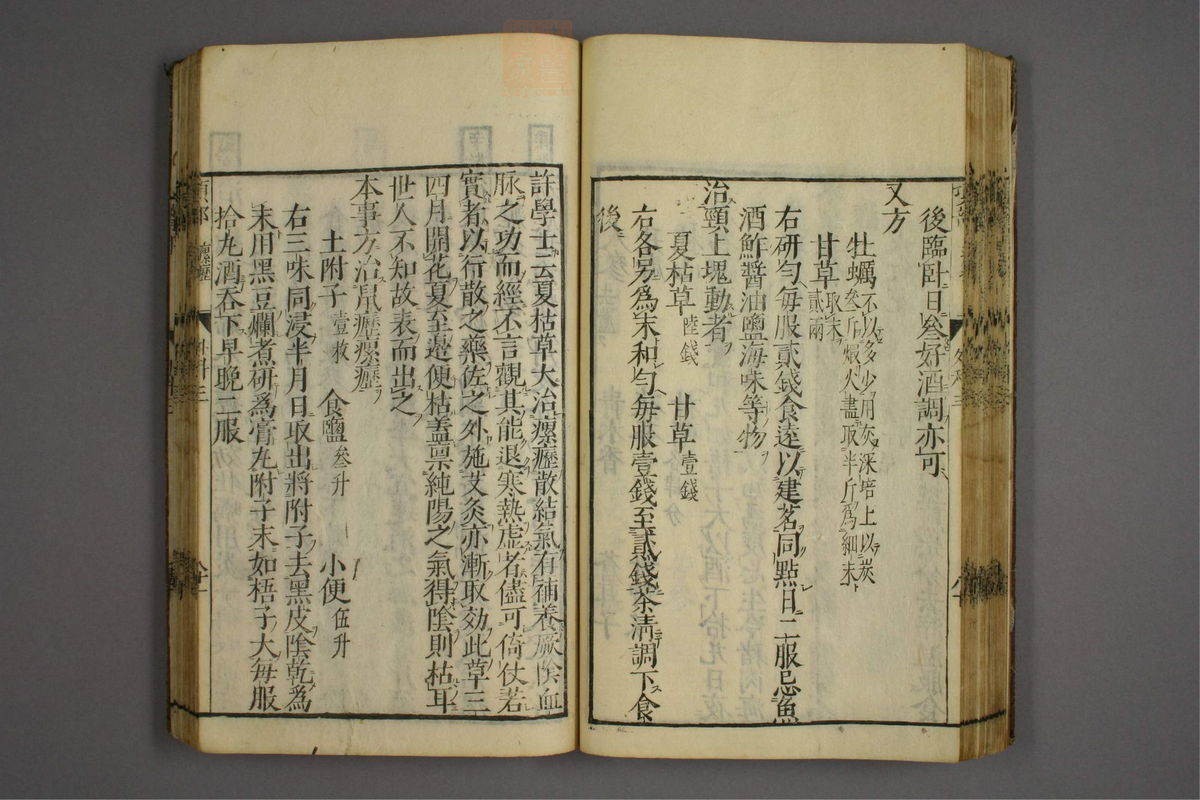 後臨卧日叄好酒調亦可
又方
牡蠣不以多少用灰深培上以炭
叄斤煅火盡取半斤爲細末
甘草取末
貳兩
右研勻每服貳錢食遠以建茗同點日二服忌魚
酒鮓醬油鹽海味等物
治頸上塊動者
夏枯草陸錢 甘草壹錢
右各另爲末和勻每服壹錢至貳錢茶清調下食
後
許學士云夏枯草大治瘰癧散結氣有補養厥陰血
脉之功而經不言觀其能退寒熱虚者儘可倚仗若
實者以行散之藥佐之外施艾灸亦漸取効此草三
四月開花夏至邊便枯盖禀純陽之氣得陰則枯耳
世人不知故表而出之
本事方治鼠癧瘰癧
土附子壹枚 食鹽叄升 小便伍升
右三味同浸半月日取出將附子去黑皮陰乾爲
末用黑豆爛煮研爲膏丸附子末如梧子大每服
拾丸酒吞下早晚二服
頁部 瘰癧 外科三